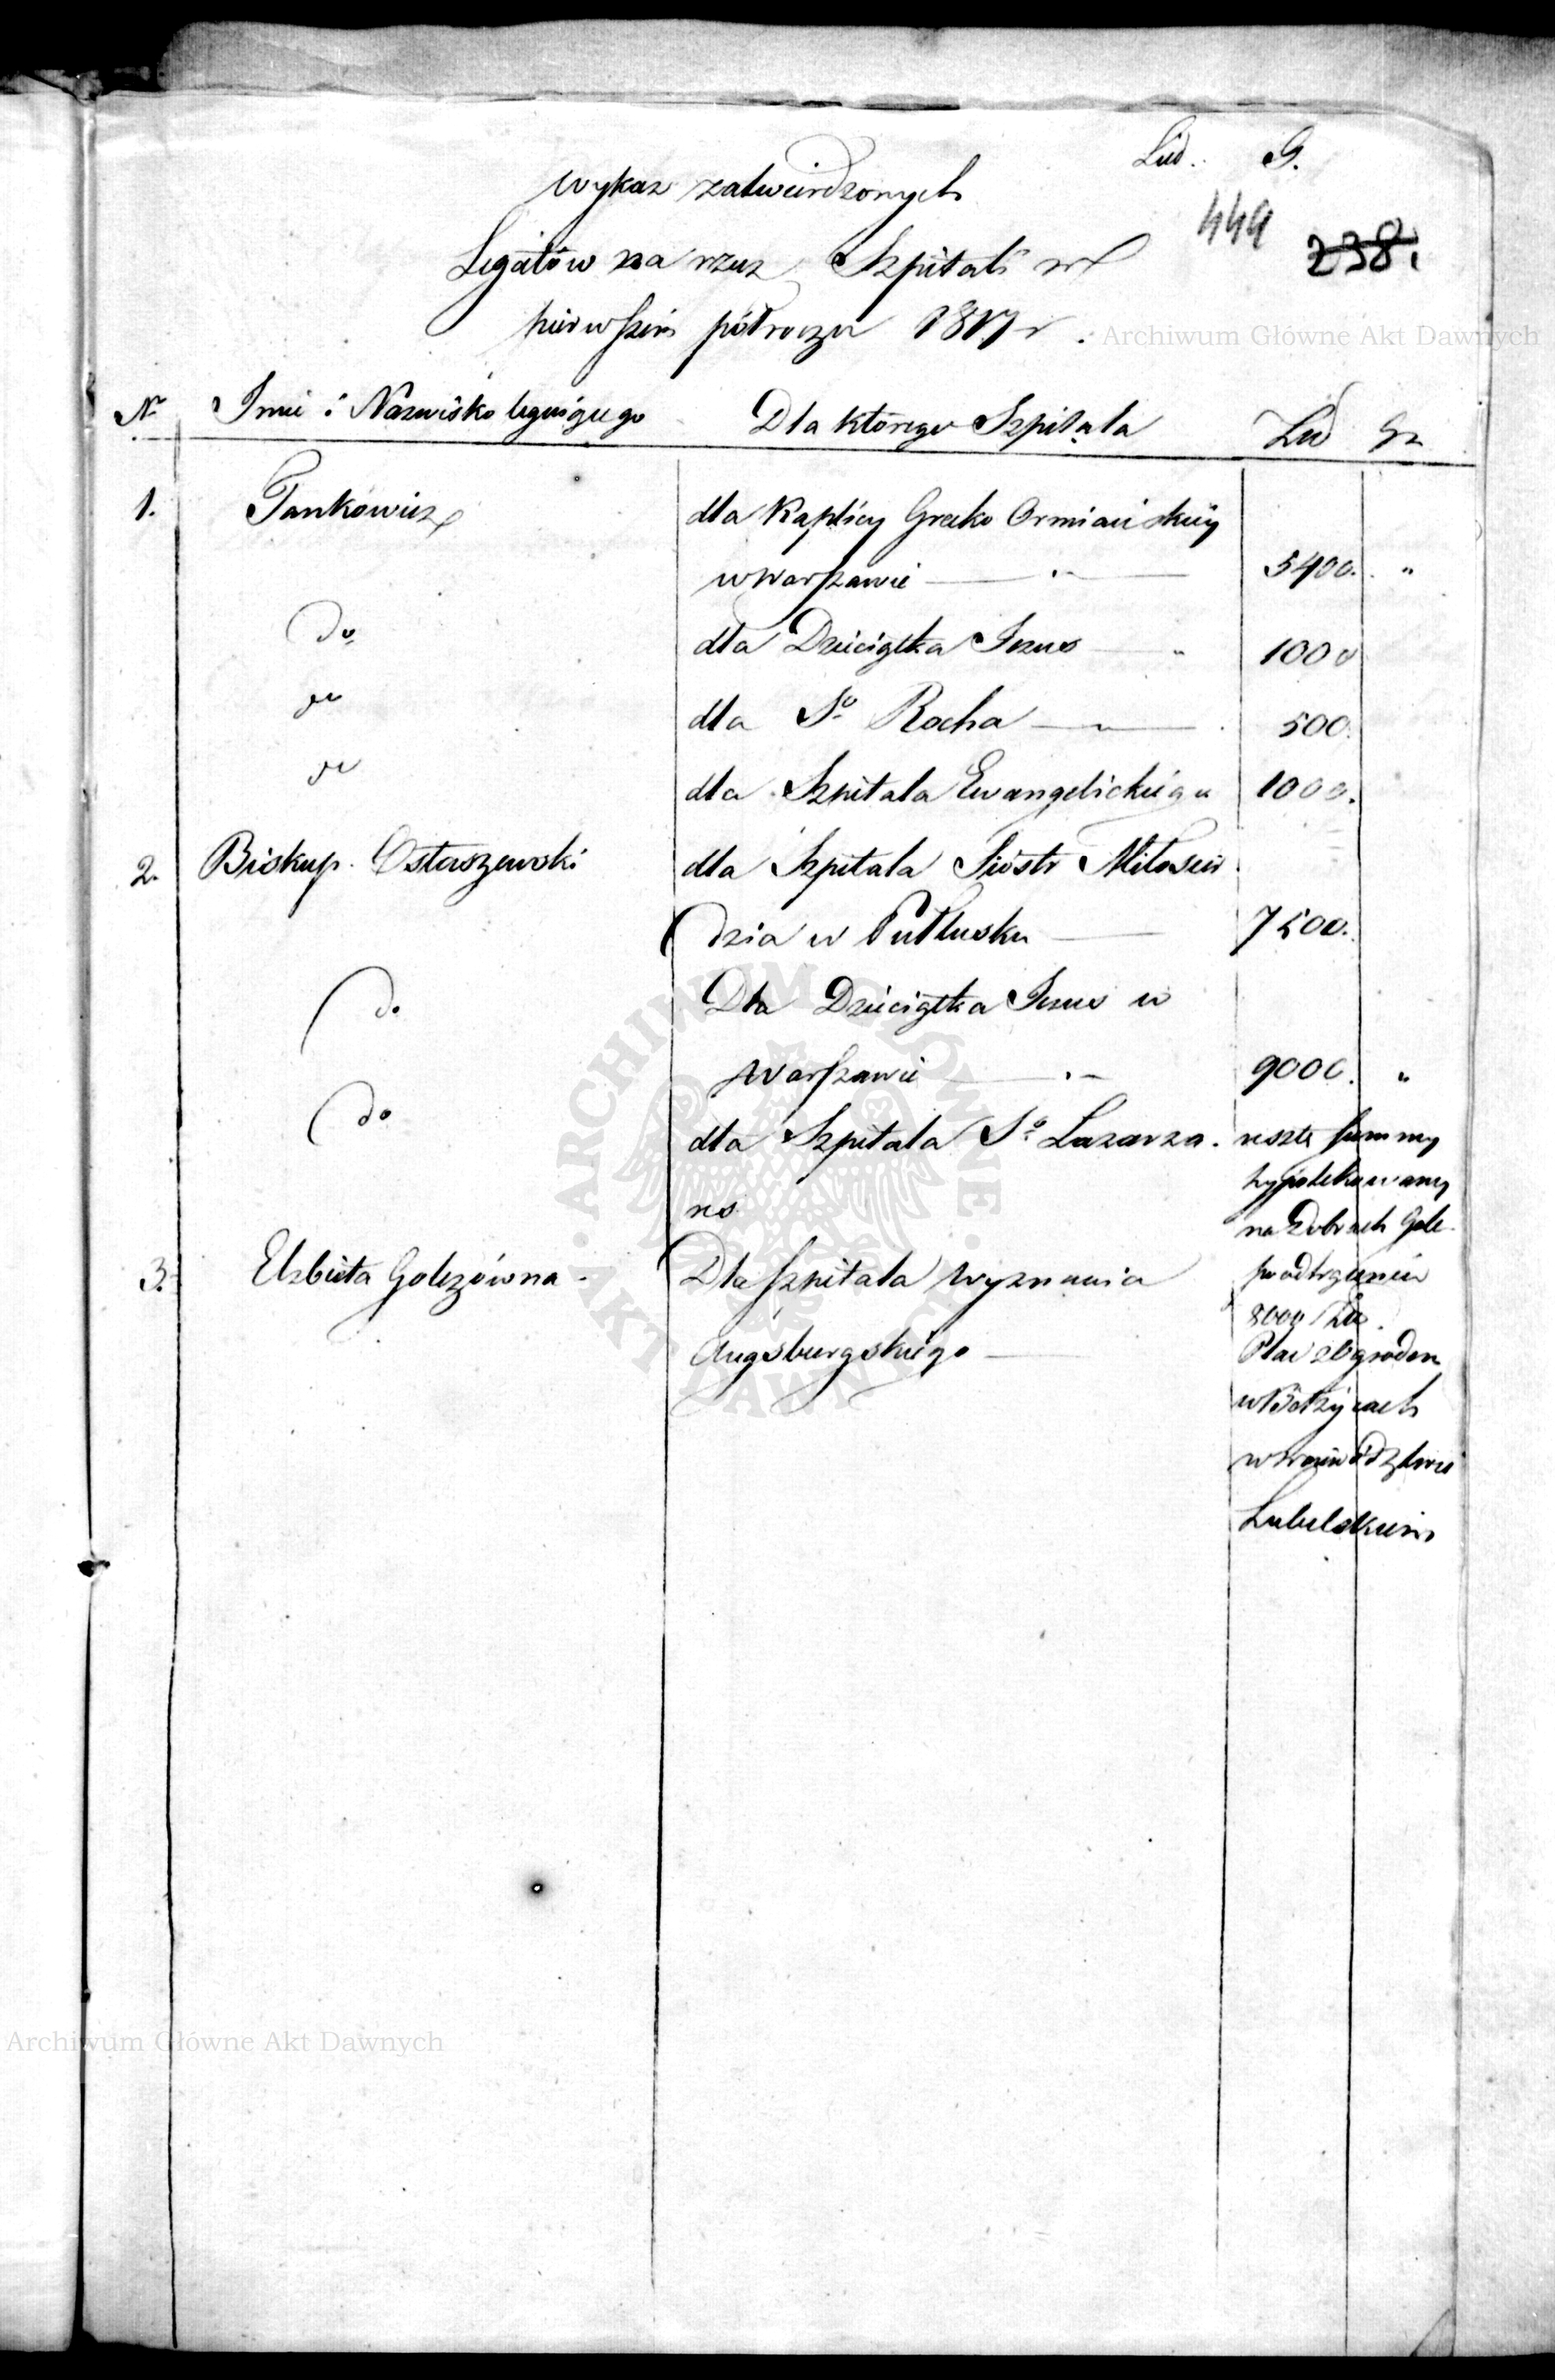 Lit. G.
Wykaz zatwierdzonych
449 238.
Legatów na rzecz Szpitali w
pierwszém półroczu 1817 r.
Archiwum Główne Akt Dawnych
Nr Imie i Nazwisko leguiącego Dla którego Szpitala Złł Gr
1. Pankowicz dla Kaplicy Grecko Ormiańskiey
w Warszawie — " — 5400. "
do dla Dzieciątka Jezus — " 1000
do dla So Rocha — " — 500.
do dla Szpitala Ewangelickiego 1000.
2. Biskup Ostaszewski dla Szpitala Sióstr Miłosier
dzia w Pułtusku — 7500.
do Dla Dzieciątka Jezus w
Warszawie — " — 9000. "
do dla Szpitala So Lazarza. reszta summy
hypotekowaney
na Dobrach Gole
3. Elżbieta Golczówna - Dla Szpitala wyznania po odtrąceniu
8000 Złł.
Augsburgskiego — Plac z Ogrodem
w
w Woiewództwie
Lubelskiém
ARCHIWUM GŁÓWNE AKT DAWNYCH
Archiwum Główne Akt Dawnych